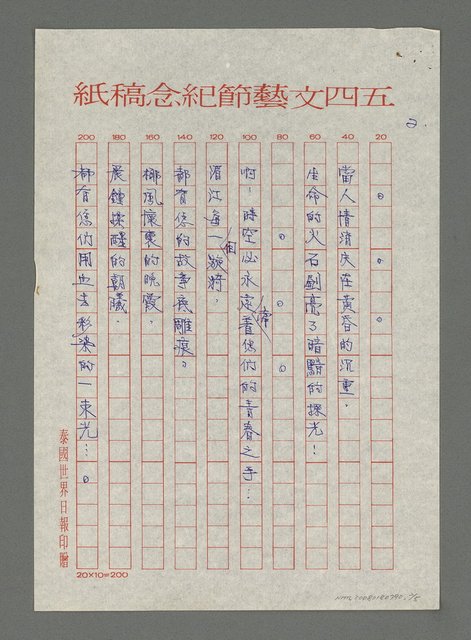 五四文藝節紀念稿紙
2.
20 40 60 80 100 120 140 160 180 200
。 。 。
當人情消失在黃昏的沉重,
生命的火石劃亮了暗黯的光!
。 。 。
啊!時空必永定牽着您们的青春之手…
湄江每一個漩
都有您的故事雕痕。
椰風懷裏的晚霞,
晨鐘揉醒的朝曦,
都有您们用血去彩染的一束光…。
泰國世界日報印贈
20×10=200